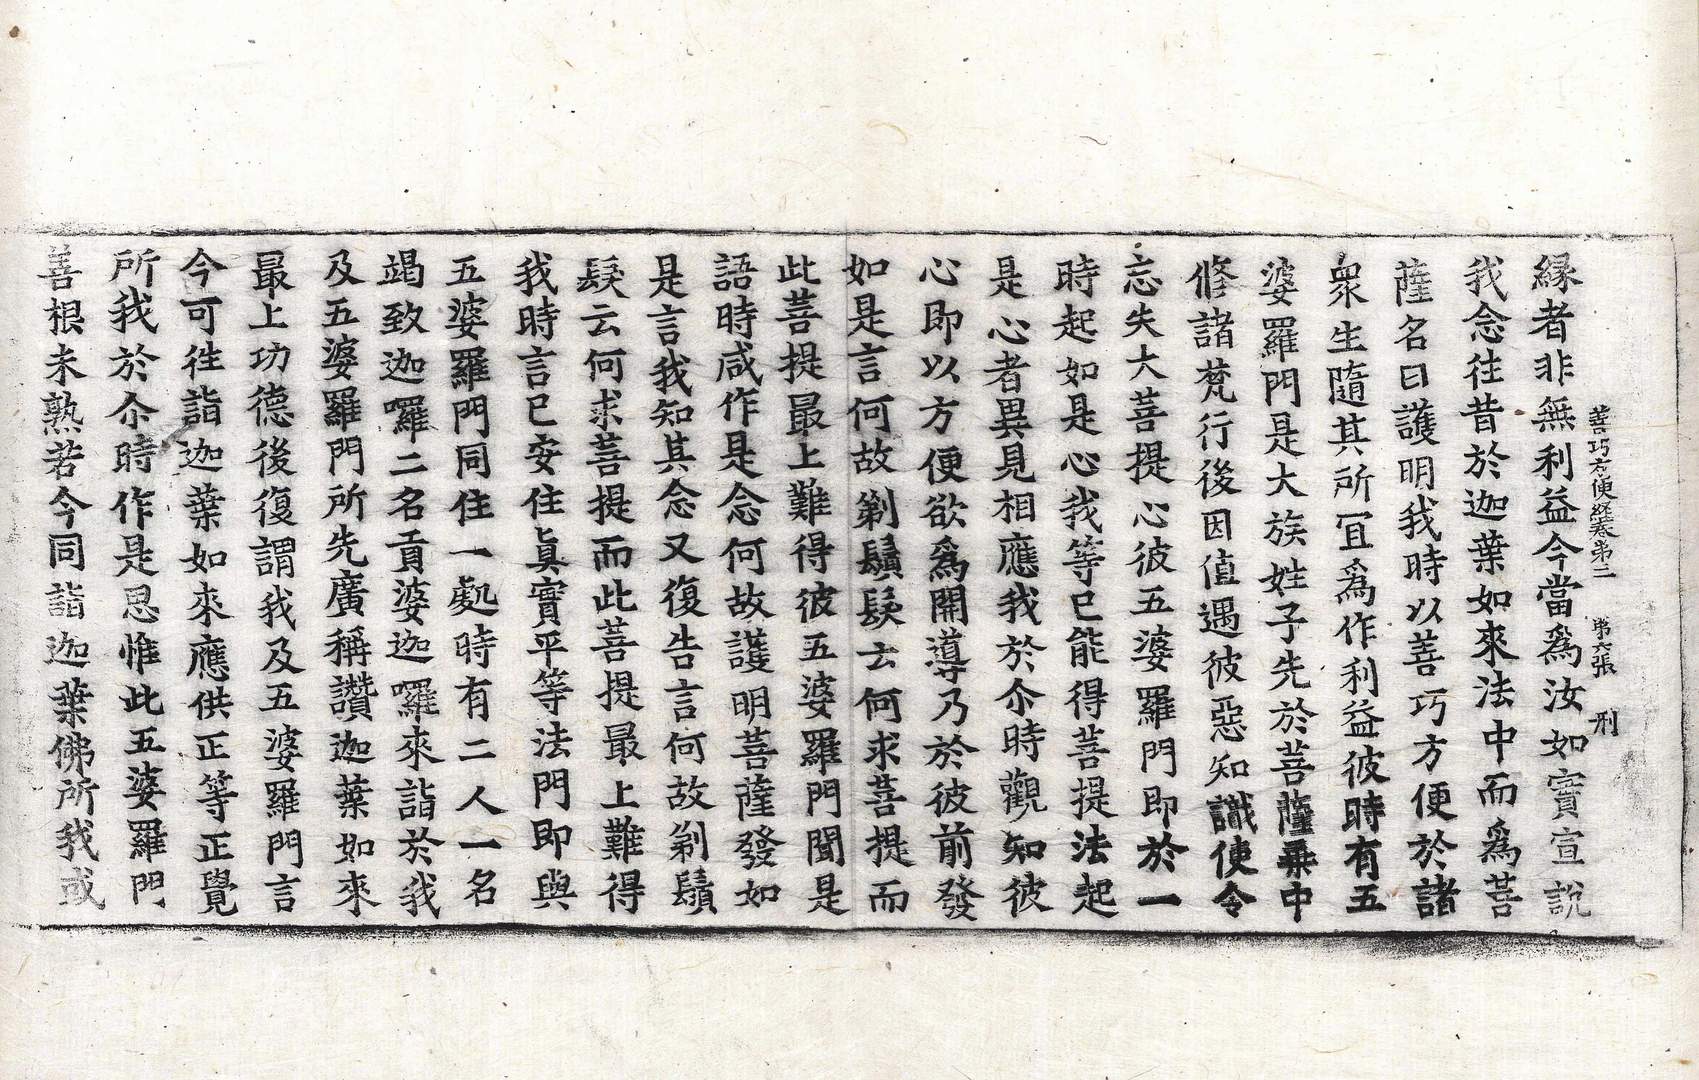 善巧方便經卷第三　第六張　刑
緣者非無利益今當爲汝如實宣說
我念往昔於迦葉如來法中而爲菩
薩名曰護明我時以善巧方便於諸
衆生隨其所冝爲作利益彼時有五
婆羅門是大族姓子先於菩薩乗中
修諸梵行後因值遇彼惡知識使令
忘失大菩提心彼五婆羅門即於一
時起如是心我等已能得菩提法起
是心者異見相應我於尒時觀知彼
心即以方便欲爲開導乃於彼前發
如是言何故剃鬚髮云何求菩提而
此菩提最上難得彼五婆羅門聞是
語時咸作是念何故護明菩薩發如
是言我知其念又復告言何故剃鬚
髮云何求菩提而此菩提最上難得
我時言已安住真實平等法門即與
五婆羅門同住一處時有二人一名
竭致迦囉二名貢婆迦囉來詣於我
及五婆羅門所先廣稱讚迦葉如來
最上功德後復謂我及五婆羅門言
今可往詣迦葉如來應供正等正覺
所我於尒時作是思惟此五婆羅門
善根未熟若今同詣迦葉佛所我或